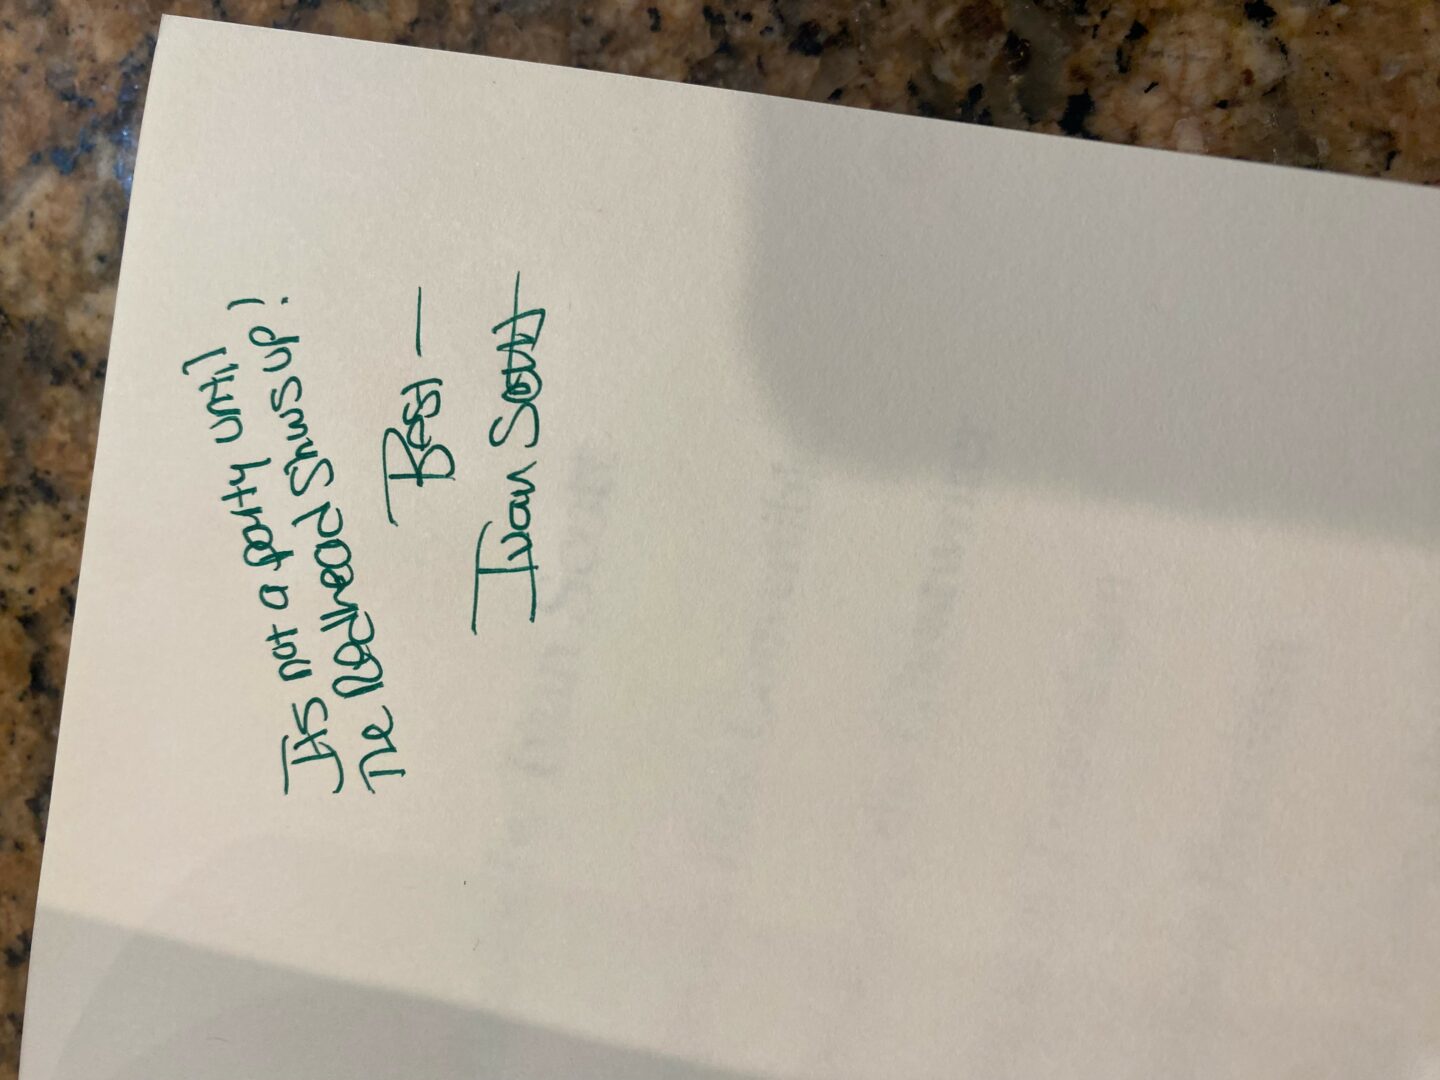 Its not a party until
The Redhead Shows up!
Best —
Ivan Scott